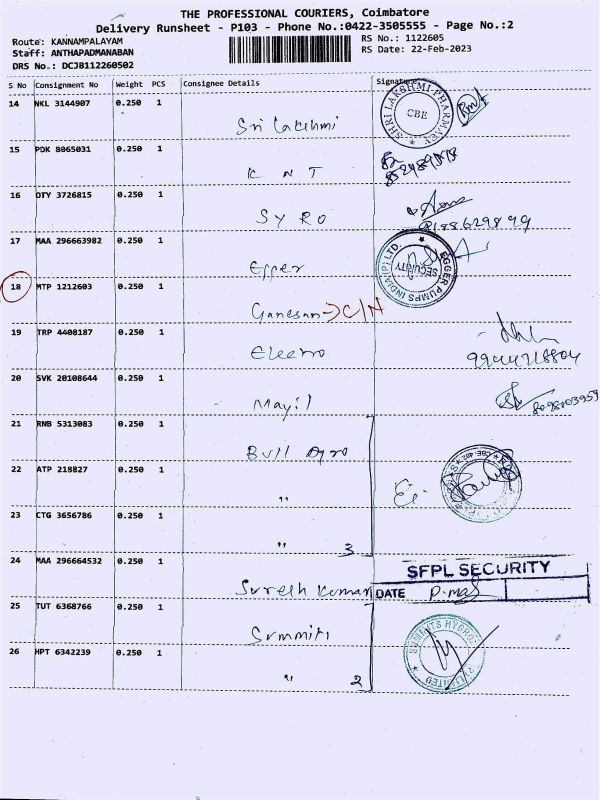 THE PROFESSIONAL COURIERS, Coimbatore
Delivery Runsheet - P103 - Phone No.:0422-3505555 - Page No.:2
Route: KANNAMPALAYAM RS No.: 1122605
Staff: ANTHAPADMANABAN RS Date: 22-Feb-2023
DRS No.: DCJB112260502
S No Consignment No Weight PCS Consignee Details Signature
14 NKL 3144907 0.250 1
Sri Lakshmi
SHRI LAKSHMI PHARMACY
CBE
15 PDK 8065031 0.250 1
K N T
16 OTY 3726815 0.250 1
SYRO
17 MAA 296663982 0.250 1
Egger
EGGER PUMPS INDIA(P) LTD.
SECURITY
18 MTP 1212603 0.250 1
Ganesan → C/N
19 TRP 4408187 0.250 1
Eleero
9944218804
20 SVK 20108644 0.250 1
Mayil
8098203959
21 RNB 5313083 0.250 1
Bull Agro
22 ATP 218827 0.250 1
"
23 CTG 3656786 0.250 1
" 3
24 MAA 296664532 0.250 1
SFPL SECURITY
Suresh Kumar DATE
25 TUT 6368766 0.250 1
Summits
26 HPT 6342239 0.250 1
" 2